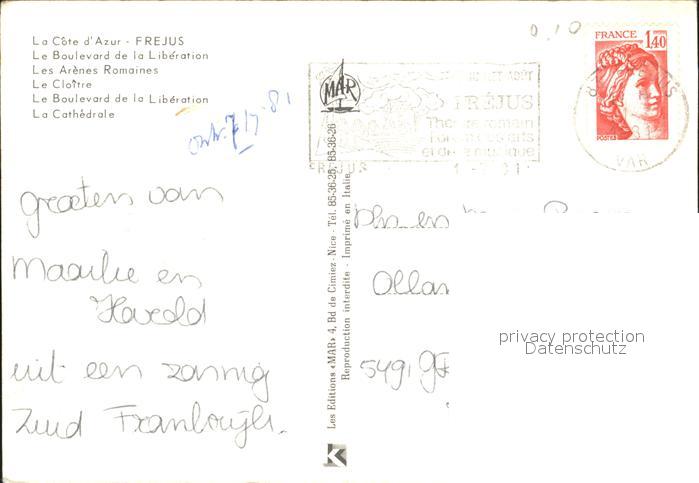 La Côte d'Azur - FREJUS
Le Boulevard de la Libération
Les Arènes Romaines
Le Cloître
Le Boulevard de la Libération
La Cathédrale
0,10
FRANCE 1,40
POSTES
MAR
JUILLET AOÛT
FRÉJUS
Théâtre romain
Forum des arts
et de la musique
FREJUS
VAR
7/7 81
groeten van
Maaike en
Harold
uit een zonnig
Zuid Frankrijk.
Les Editions «MAR» 4, Bd de Cimiez - Nice - Tél. 85-36-25, 85-36-26
Reproduction interdite - Imprimé en Italie
en
Ollan
5491
privacy protection
Datenschutz
K